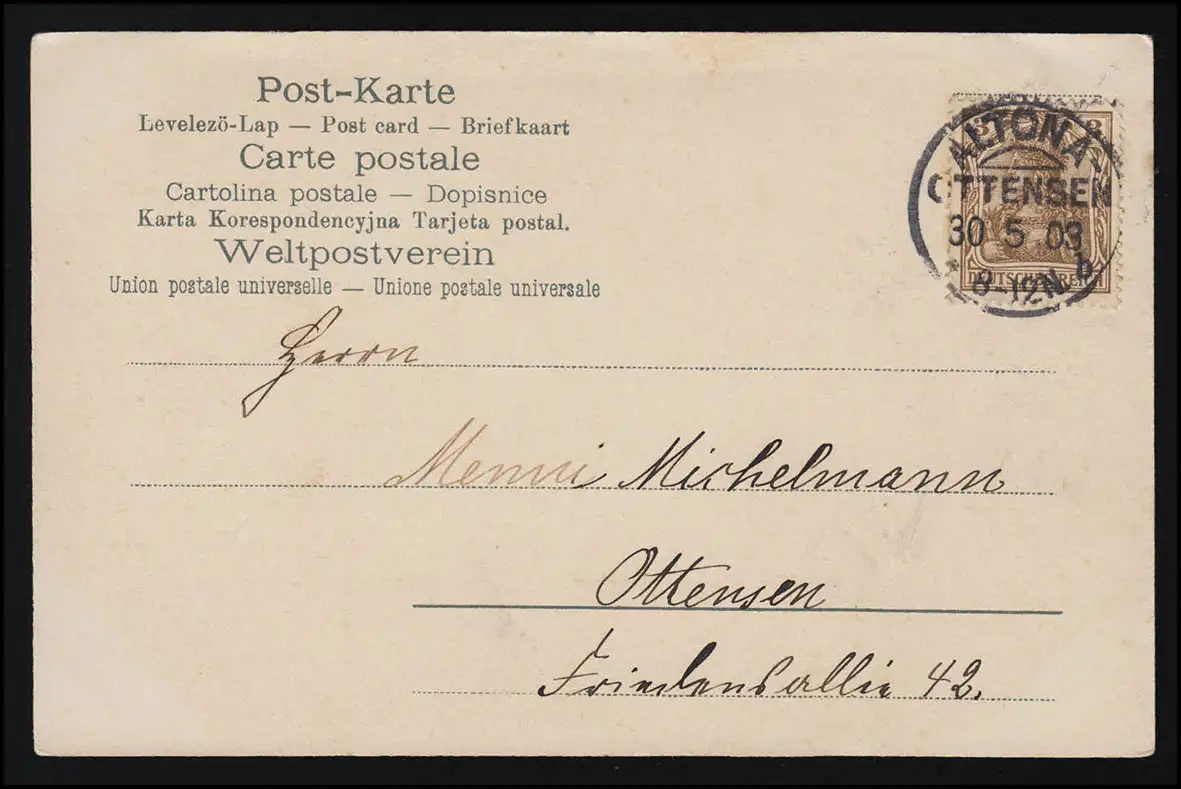 Post-Karte
Levelezö-Lap — Post card — Briefkaart
Carte postale
Cartolina postale — Dopisnice
Karta Korespondencyjna Tarjeta postal.
Weltpostverein
Union postale universelle — Unione postale universale
3 3
DEUTSCHES REICH
ALTONA
OTTENSEN
30 5 03
* 8-12N. b
Herrn
Menni Michelmann
Ottensen
Friedensallie 42.